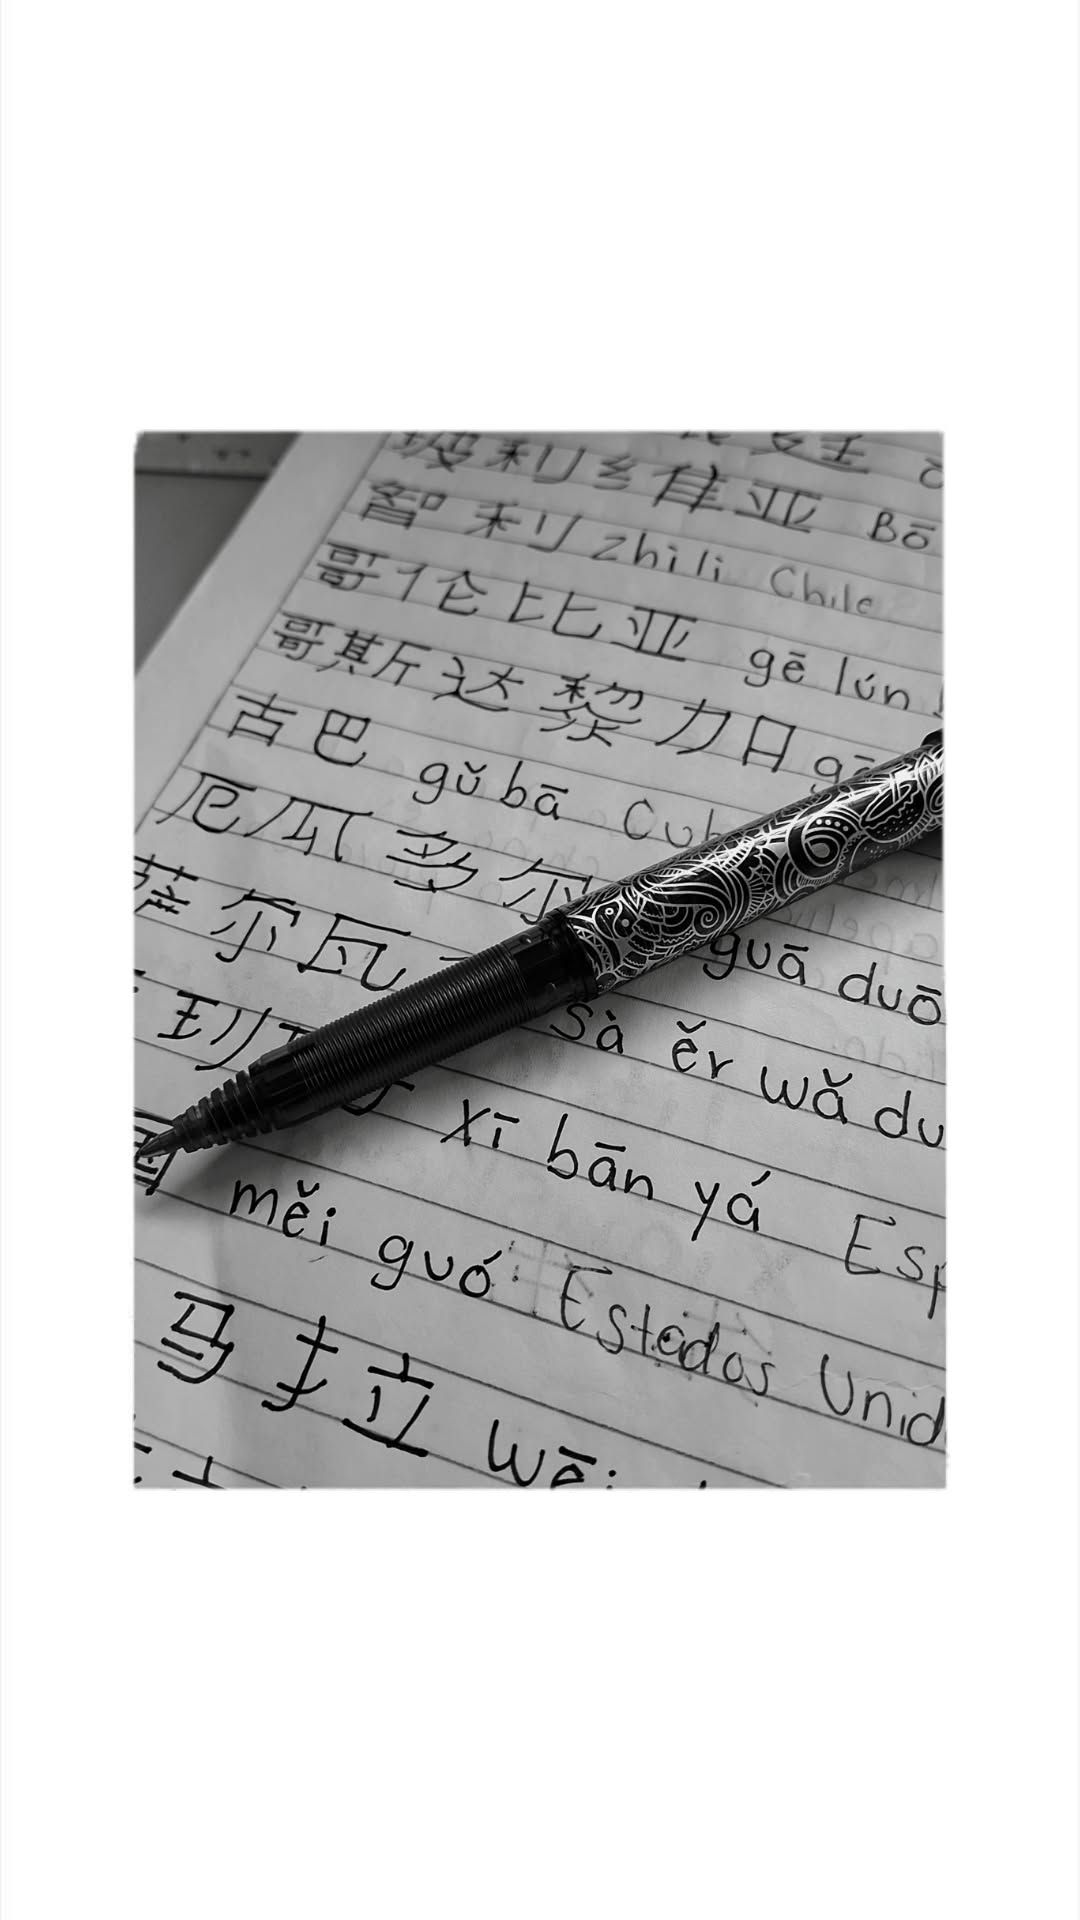 玻利维亚 Bō
智利 zhìlì Chile
哥伦比亚 gē lún
哥斯达黎加 gē
古巴 gǔ bā Cub
厄瓜多尔 guā duō
萨尔瓦 sà ěr wǎ du
xī bān yá Esp
国 měi guó Estados Unid
马拉 wēi